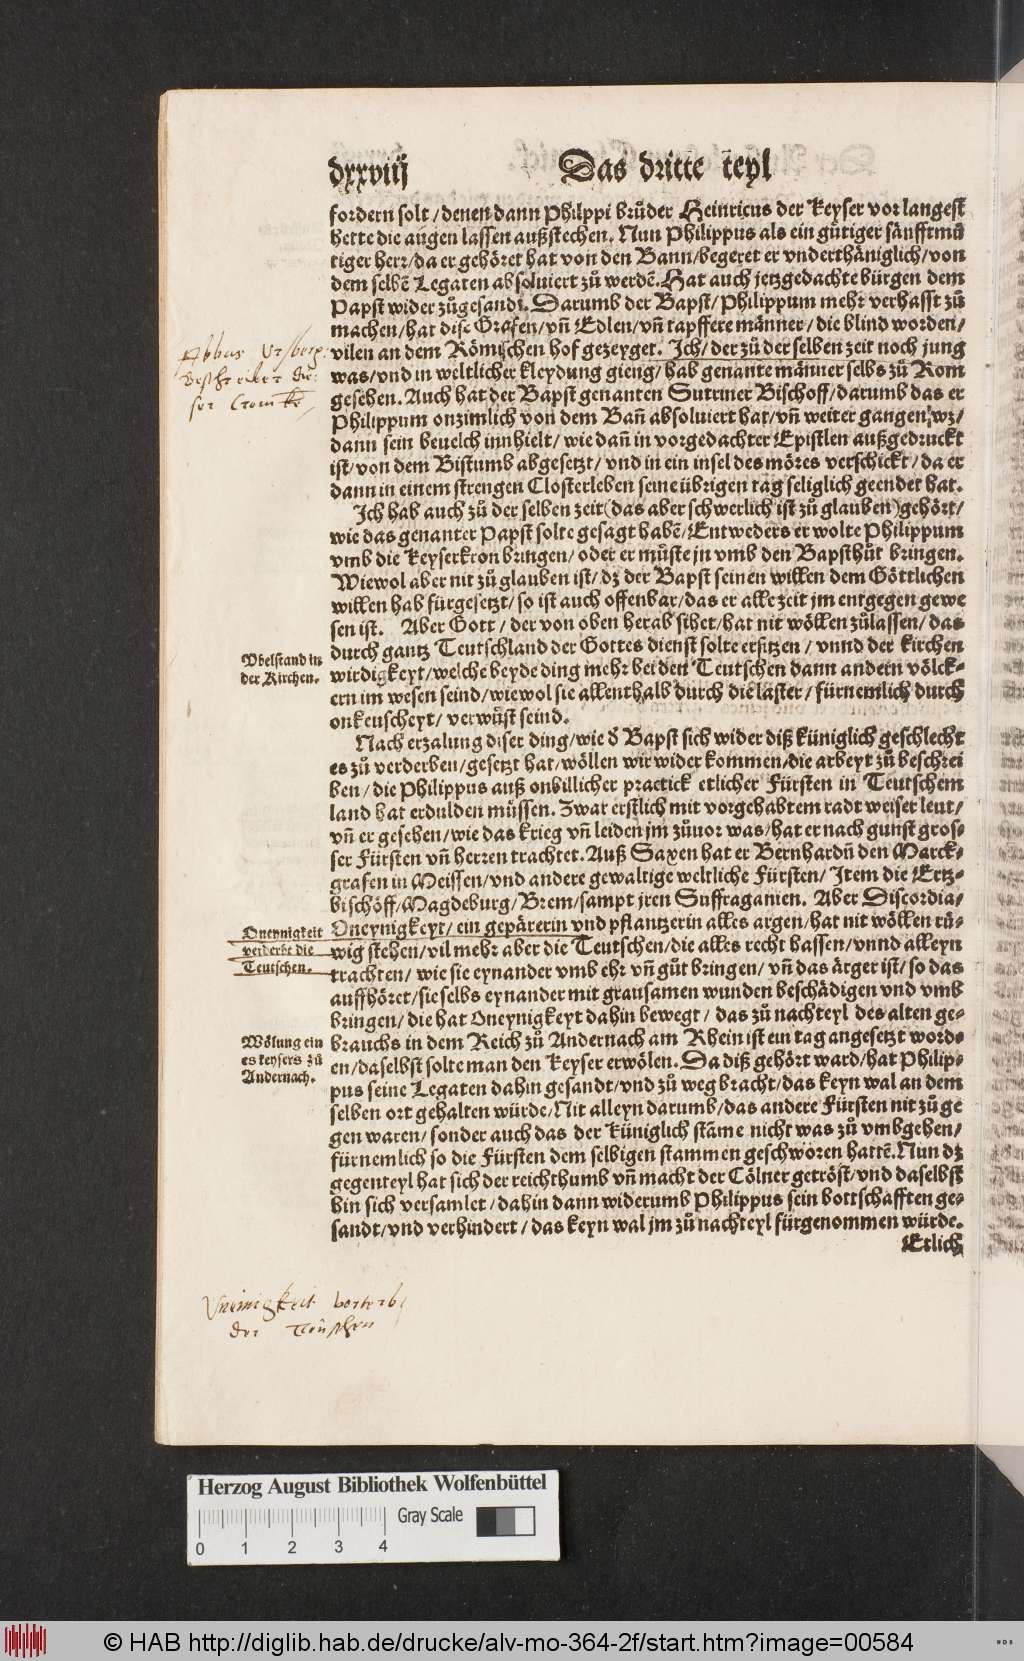 dxxviij
Das dritte teyl
fordern solt / denen dann Philppi brůder Heinricus der Keyser vor langest
hette die augen lassen außstechen. Nun Philippus als ein gůtiger sånfftmů
tiger herr / da er gehöret hat von den Bann / begeret er vnderthåniglich / von
dem selbē Legaten absoluiert zů werdē. Hat auch jetzgedachte bürgen dem
Papst wider zůgesandt. Darumb der Bapst / Philippum mehr verhasst zů
machen / hat dise Grafen / vñ Edlen / vñ tapffere männer / die blind worden /
vilen an dem Römischen hof gezeyget. Ich / der zů der selben zeit noch jung
was / vnd in weltlicher kleydung gieng / hab genante männer selbs zů Rom
gesehen. Auch hat der Bapst genanten Sutriner Bischoff / darumb das er
Philippum onzimlich von dem Bañ absoluiert hat / vñ weiter gangen, wz /
dann sein beuelch innhielt / wie dañ in vorgedachter Epistlen außgedruckt
ist / von dem Bistumb abgesetzt / vnd in ein insel des möres verschickt / da er
dann in einem strengen Closterleben seine übrigen tag seliglich geendet hat.
Ich hab auch zů der selben zeit (das aber schwerlich ist zů glauben) gehört /
wie das genanter Papst solte gesagt habē / Entweders er wolte Philippum
vmb die Keyserkron bringen / oder er můste jn vmb den Bapsthůt bringen.
Wiewol aber nit zů glauben ist / dz der Bapst seinen willen dem Göttlichen
willen hab fürgesetzt / so ist auch offenbar / das er alle zeit jm entgegen gewe
sen ist. Aber Gott / der von oben herab sihet / hat nit wöllen zůlassen / das
durch gantz Teutschland der Gottes dienst solte ersitzen / vnnd der kirchen
wirdigkeyt / welche beyde ding mehr bei den Teutschen dann andern völck-
ern im wesen seind / wiewol sie allenthalb durch die laster / fürnemlich durch
onkeuscheyt / verwůst seind.
Nach erzalung diser ding / wie d Bapst sich wider diß küniglich geschlecht
es zů verderben / gesetzt hat / wöllen wir wider kommen / die arbeyt zů beschrei
ben / die Philippus auß onbillicher practick etlicher Fürsten in Teutschem
land hat erdulden müssen. Zwar erstlich mit vorgehabtem radt weiser leut /
vñ er gesehen / wie das krieg vñ leiden jm zůuor was / hat er nach gunst gros-
ser Fürsten vñ herren trachtet. Auß Saxen hat er Bernhardū den Marck-
grafen in Meissen / vnd andere gewaltige weltliche Fürsten / Item die Ertz-
bischöff / Magdeburg / Brem / sampt jren Suffraganien. Aber Discordia /
Oneynigkeyt / ein gepärerin vnd pflantzerin alles argen / hat nit wöllen rů-
wig stehen / vil mehr aber die Teutschen / die alles recht hassen / vnnd alleyn
trachten / wie sie eynander vmb ehr vñ gůt bringen / vñ das årger ist / so das
auffhöret / sie selbs eynander mit grausamen wunden beschädigen vnd vmb
bringen / die hat Oneynigkeyt dahin bewegt / das zů nachteyl des alten ge-
brauchs in dem Reich zů Andernach am Rhein ist ein tag angesetzt word-
en / daselbst solte man den Keyser erwölen. Da diß gehört ward / hat Philip-
pus seine Legaten dahin gesandt / vnd zů weg bracht / das keyn wal an dem
selben ort gehalten würde / Nit alleyn darumb / das andere Fürsten nit zů ge
gen waren / sonder auch das der küniglich stāme nicht was zů vmbgehen /
fürnemlich so die Fürsten dem selbigen stammen geschworen hattē. Nun dz
gegenteyl hat sich der reichthumb vñ macht der Cölner getröst / vnd daselbst
hin sich versamlet / dahin dann widerumb Philippus sein bottschafften ge-
sandt / vnd verhindert / das keyn wal jm zů nachteyl fürgenommen würde.
Etlich
Abbas Vrsberg.
beschreiber die-
ser Cronike
Vbelstand in
der Kirchen.
Oneynigkeit
verderbt die
Teutschen.
Wölung ein
es keysers zů
Andernach.
Vneinigkeit verterb
der Teüschen
Herzog August Bibliothek Wolfenbüttel
Gray Scale
0 1 2 3 4
© HAB http://diglib.hab.de/drucke/alv-mo-364-2f/start.htm?image=00584